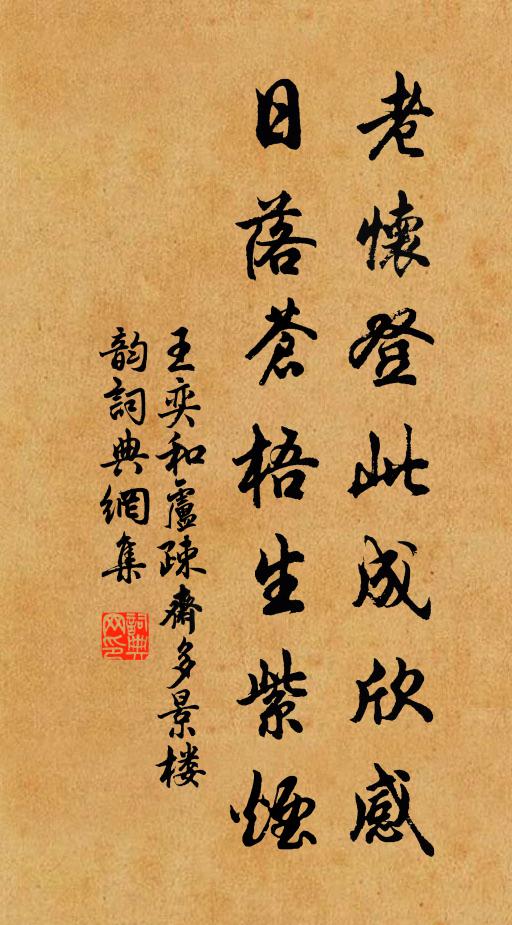 老懷登此成欣感
日落蒼梧生紫煙
王奕和盧疎齋多景楼
韵詞典網集
詞典网印